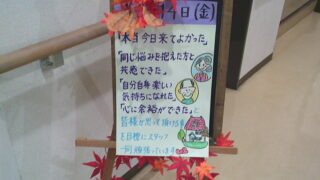 4日(金)
「本当今日来てよかった」
「同じ悩みを抱えた方と
共感できた」
「自分自身楽しい
気持ちになれた」
「心に余裕ができた」と
皆様が思って頂ける事
を目標にスタッフ
一同頑張っています